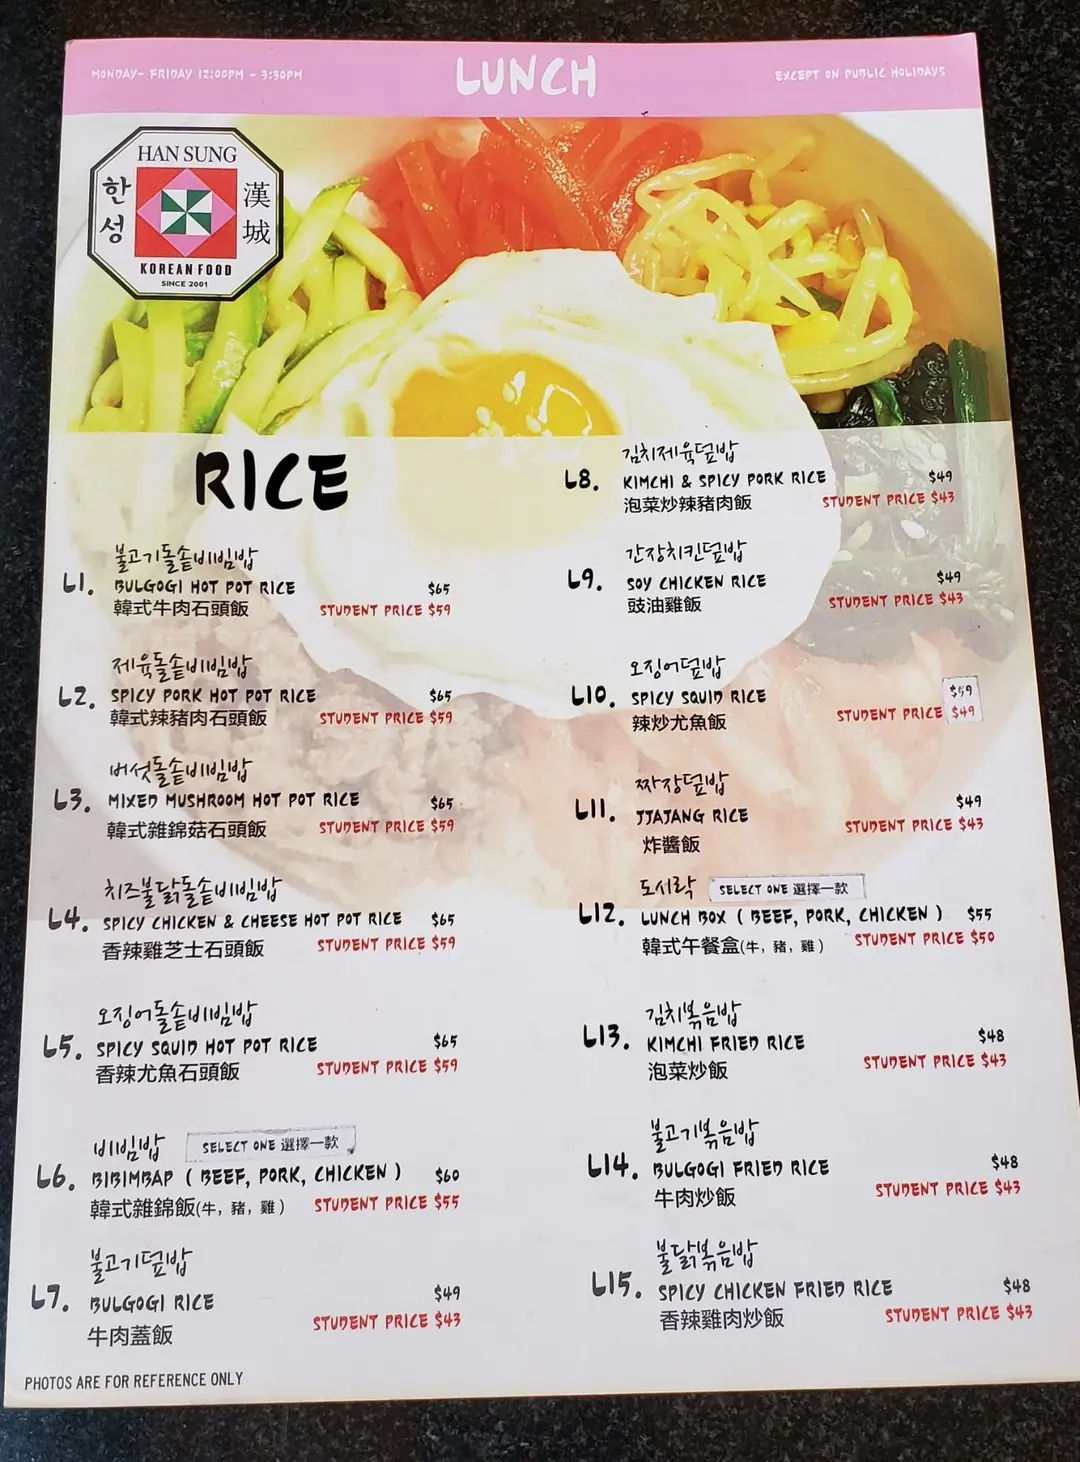 MONDAY- FRIDAY 12:00PM - 3:30PM
LUNCH
EXCEPT ON PUBLIC HOLIDAYS
HAN SUNG
한성
漢城
KOREAN FOOD
SINCE 2001
RICE
불고기돌솥비빔밥
L1. BULGOGI HOT POT RICE $65
韓式牛肉石頭飯 STUDENT PRICE $59
제육돌솥비빔밥
L2. SPICY PORK HOT POT RICE $65
韓式辣豬肉石頭飯 STUDENT PRICE $59
버섯돌솥비빔밥
L3. MIXED MUSHROOM HOT POT RICE $65
韓式雜錦菇石頭飯 STUDENT PRICE $59
치즈불닭돌솥비빔밥
L4. SPICY CHICKEN & CHEESE HOT POT RICE $65
香辣雞芝士石頭飯 STUDENT PRICE $59
오징어돌솥비빔밥
L5. SPICY SQUID HOT POT RICE $65
香辣尤魚石頭飯 STUDENT PRICE $59
비빔밥 SELECT ONE 選擇一款
L6. BIBIMBAP ( BEEF, PORK, CHICKEN ) $60
韓式雜錦飯(牛, 豬, 雞 ) STUDENT PRICE $55
불고기덮밥
L7. BULGOGI RICE $49
牛肉蓋飯 STUDENT PRICE $43
김치제육덮밥
L8. KIMCHI & SPICY PORK RICE $49
泡菜炒辣豬肉飯 STUDENT PRICE $43
간장치킨덮밥
L9. SOY CHICKEN RICE $49
豉油雞飯 STUDENT PRICE $43
오징어덮밥
L10. SPICY SQUID RICE $59
辣炒尤魚飯 STUDENT PRICE $49
짜장덮밥
L11. JJAJANG RICE $49
炸醬飯 STUDENT PRICE $43
도시락 SELECT ONE 選擇一款
L12. LUNCH BOX ( BEEF, PORK, CHICKEN ) $55
韓式午餐盒(牛, 豬, 雞 ) STUDENT PRICE $50
김치볶음밥
L13. KIMCHI FRIED RICE $48
泡菜炒飯 STUDENT PRICE $43
불고기볶음밥
L14. BULGOGI FRIED RICE $48
牛肉炒飯 STUDENT PRICE $43
불닭볶음밥
L15. SPICY CHICKEN FRIED RICE $48
香辣雞肉炒飯 STUDENT PRICE $43
PHOTOS ARE FOR REFERENCE ONLY